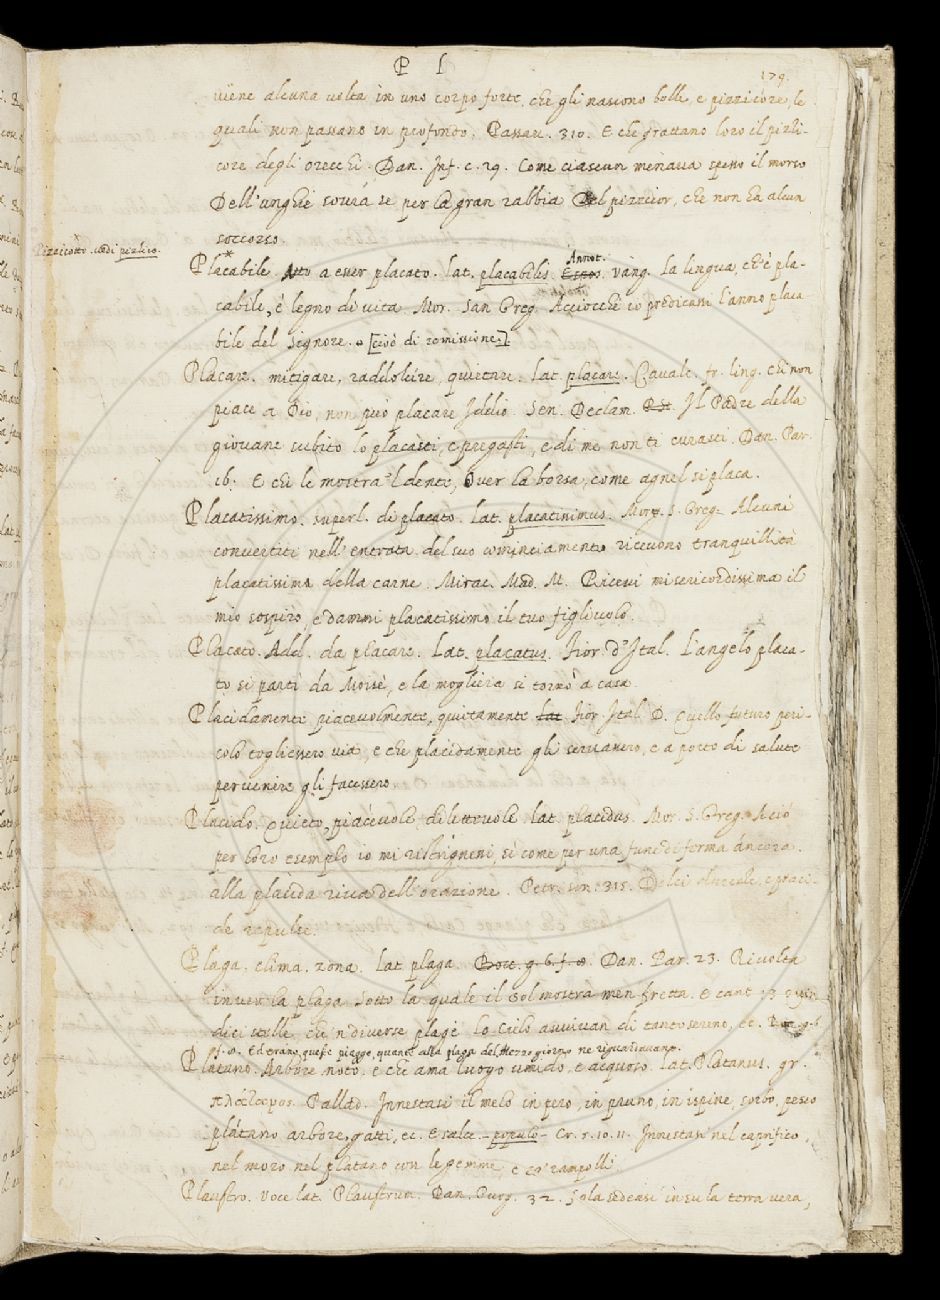 P l
179.
viene alcuna volta in uno corpo forte, che gli nascono bolle, e pizzicore, le
quali non passano in profondo. Passau. 310. E che grattano loro il pizzi-
core degli orecchi. Dan. Inf. c. 29. Come ciascun menava spesso il morso
Dell'unghie sovra se per la gran rabbia Del pizzicor, che non ha alcun
soccorso.
Pizzicotto. vedi pizzico.
Placabile. Atto a esser placato. lat. placabilis. Annot. vang. La lingua, ch'è pla-
cabile, è legno di vita. Mor. San Greg. Acciocchè io predicassi l'anno placa-
bile del Signore. [cioè di remissione.]
Placare. mitigare, raddolcire, quietare. lat. placare. Cavalc. fr. ling. chi non
piace a Dio, non può placare Iddio. Sen. Declam. Il Padre della
giovane subito lo placasti, e pregasti, e di me non ti curasti. Dan. Par.
16. E chi le mostra 'l dente, Over la borsa, come agnel si placa.
Placatissimo. superl. di placato. lat. placatissimus. Mor. S. Greg. Alcuni
convertiti nell'entrata del suo cominciamento ricevono tranquillità
placatissima della carne. Mirac. Mad. M. Ricevi misericordissima il
mio sospiro, e dammi placatissimo il tuo figliuolo.
Placato. Add. da placare. Lat. placatus. Fior. d'Ital. L'angelo placa-
to si partì da Moisè, e la mogliera si tornò a casa.
Placidamente. piacevolmente, quietamente lat Fior. Ital. D. Quello futuro peri-
colo togliessero via, e che placidamente gli servassero, e a porto di salute
pervenire gli facessero
Placido. Quieto, piacevole, dilettevole. lat. placidus. Mor. S. Greg. Acciò
per loro esemplo io mi ristrignessi, sì come per una fune di ferma áncora.
alla placida riva dell'orazione. Petr. son. 315. Dolci durezze, e placi-
de repulse.
Plaga. clima. zona. Lat plaga. Bocc. g. 6. f. Dan. Par. 23. Rivolta
inver la plaga Sotto la quale il Sol mostra men fretta. E cant 13
dici stelle, che 'n diverse plage Lo Cielo avvivan di tanto sereno, ec. Bocc. g. 6
f. Ed erano queste piagge, quanto alla plaga del Mezzo giorno ne riguardavano.
Platano. Arbore noto. e che ama luogo umido, e acquoso. Lat. Platanus. gr.
πλάτανος. Pallad. Innestasi il melo in pero, in pruno, in ispine, sorbo, pesco
plátano arbore, gatti, ec. E salce. populo Cr. 5. 10. 11. Innestasi nel caprifico,
nel moro nel platano con le gemme, e co' rampolli.
Plaustro. voce lat. Plaustrum. Dan. Purg. 32. Sola sedeasi in su la terra vera,